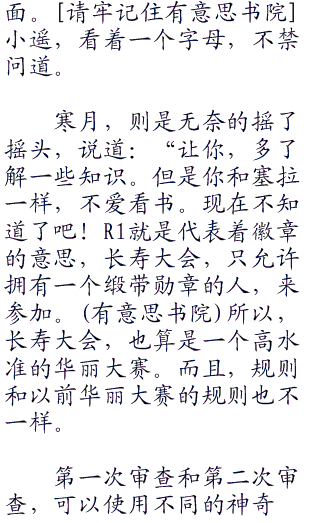 面。[请牢记住有意思书院]
小遥，看着一个字母，不禁
问道。
寒月，则是无奈的摇了
摇头，说道：“让你，多了
解一些知识。但是你和塞拉
一样，不爱看书。现在不知
道了吧！R1就是代表着徽章
的意思，长寿大会，只允许
拥有一个缎带勋章的人，来
参加。(有意思书院)所以，
长寿大会，也算是一个高水
准的华丽大赛。而且，规则
和以前华丽大赛的规则也不
一样。
第一次审查和第二次审
查，可以使用不同的神奇